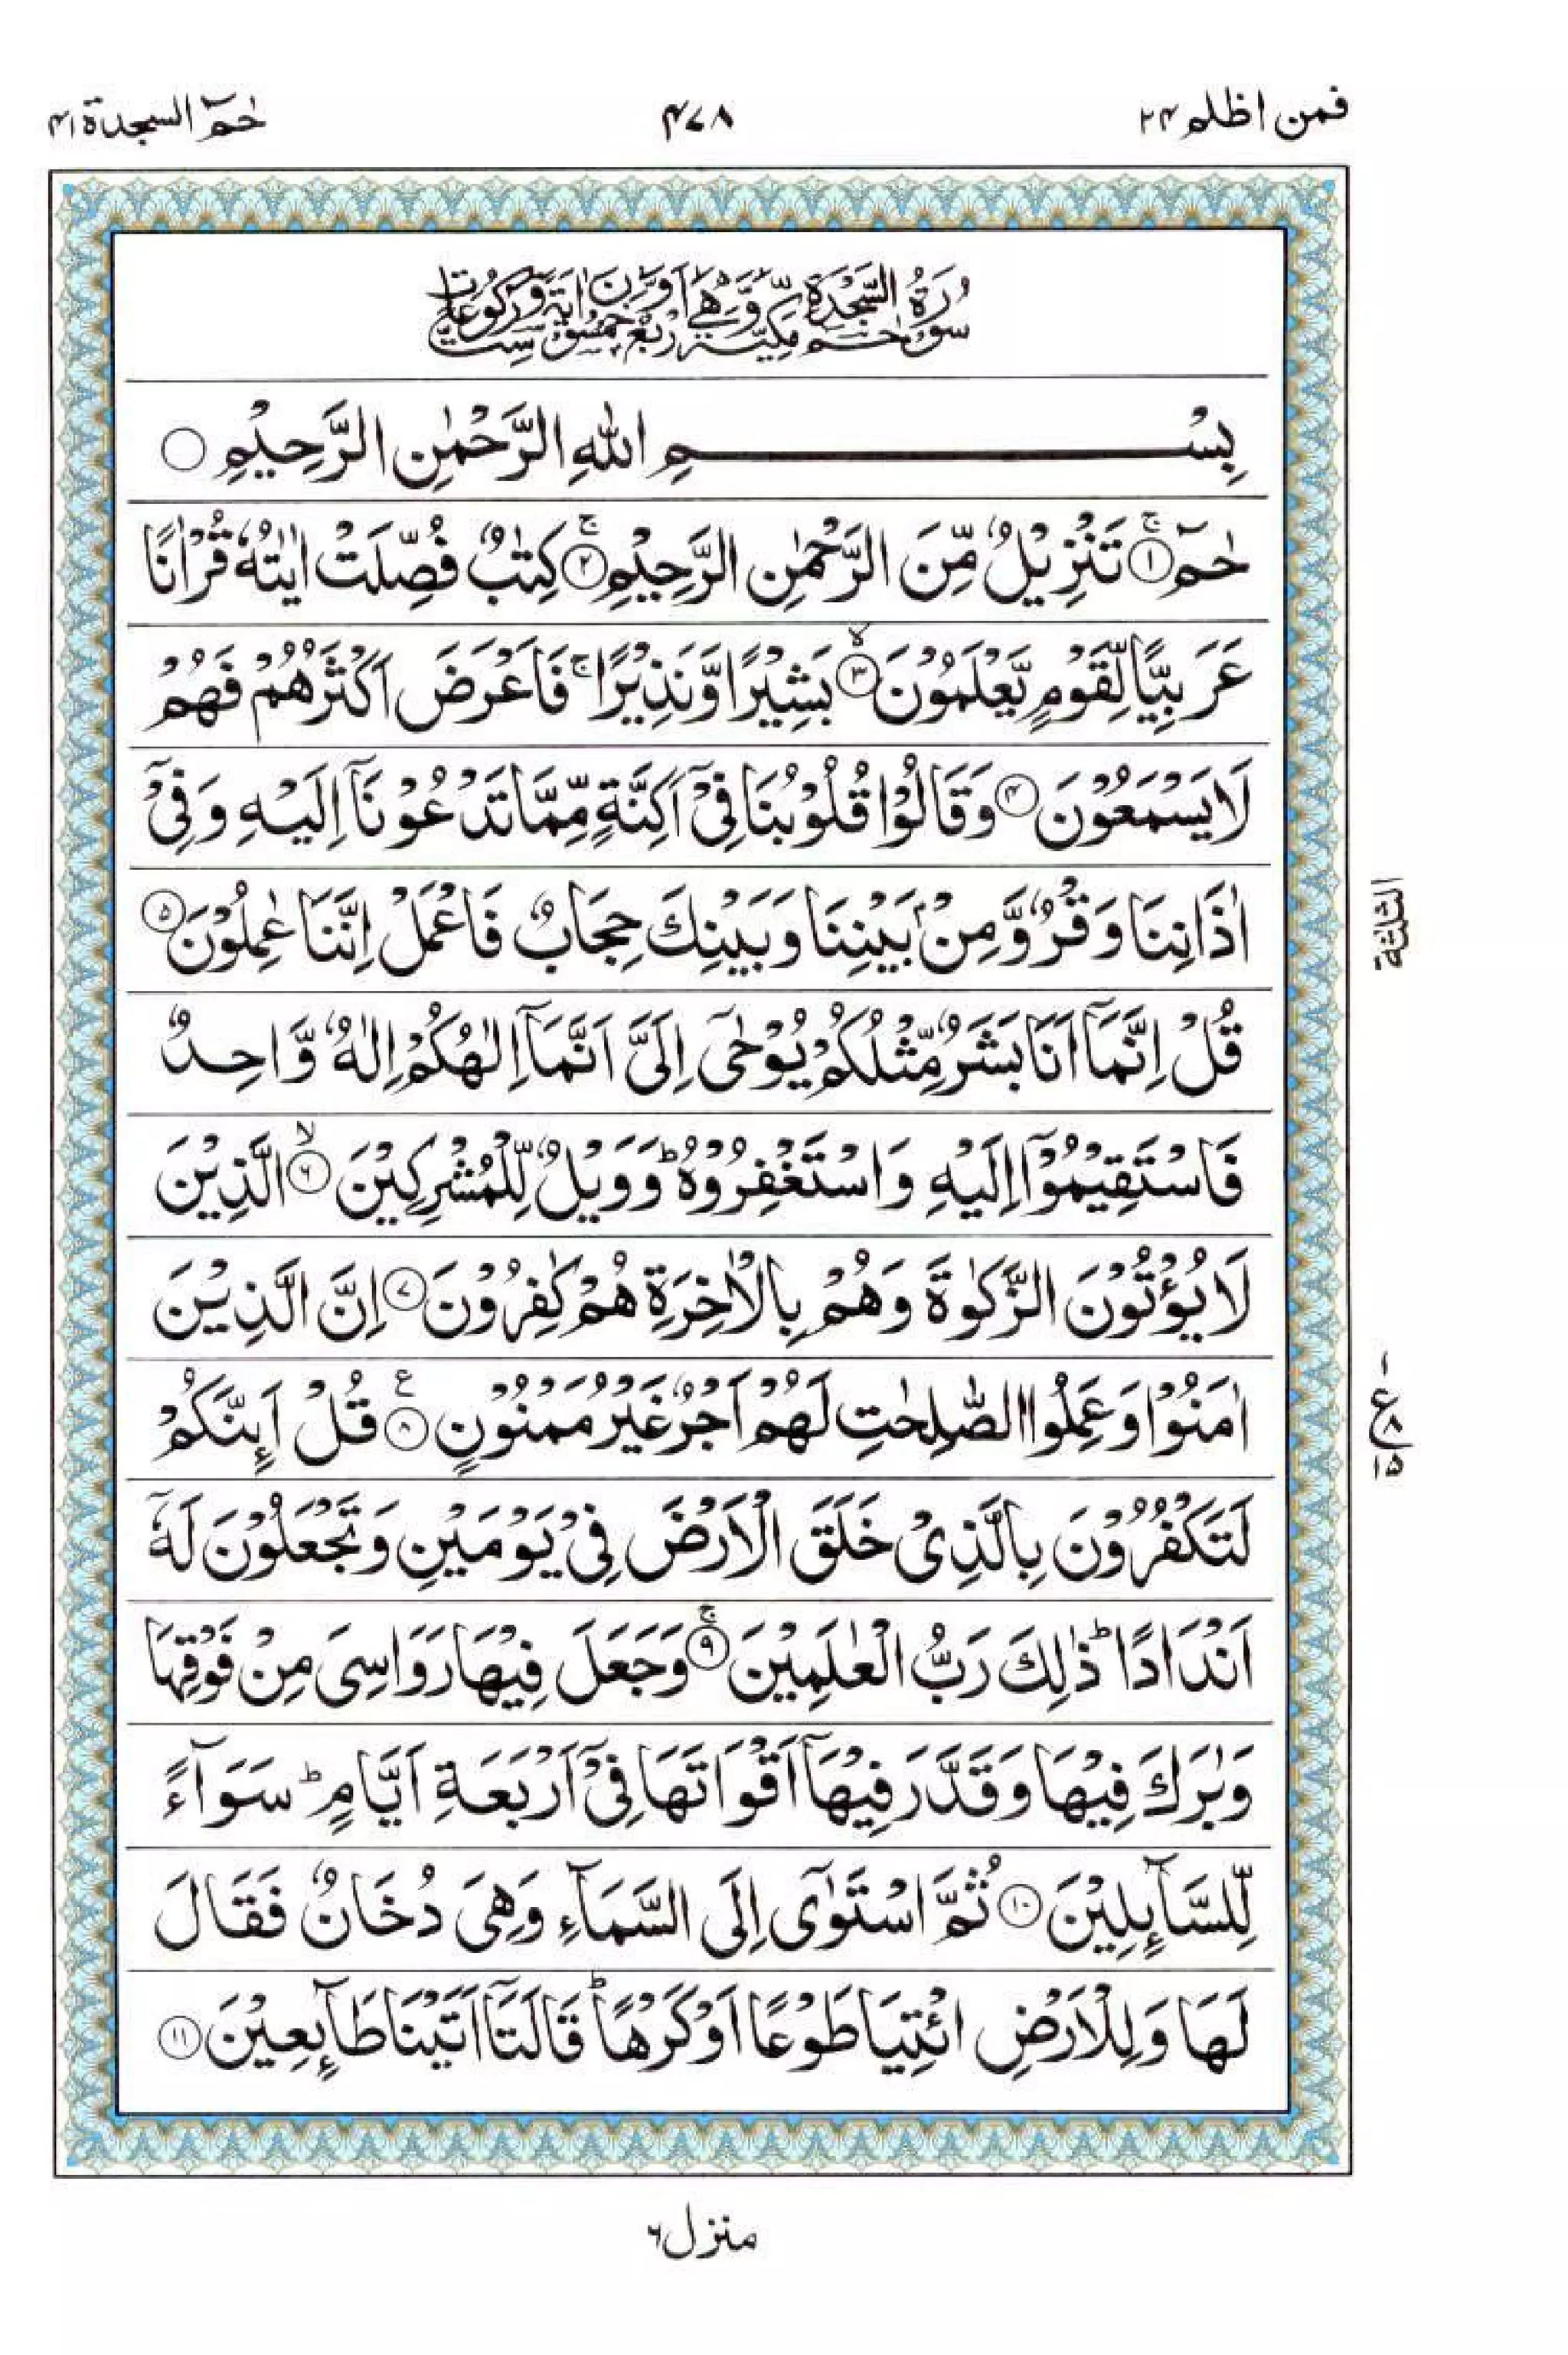 فمن اظلم ۲۴
۴۷۸
حٰمٓ السجدة ۴۱
سُوْرَةُ حٰمٓ السَّجْدَةِ مَكِّيَّةٌ وَّهِىَ اَرْبَعٌ وَّخَمْسُوْنَ اٰيَةً وَّسِتُّ رُكُوْعَاتٍ
بِسْمِ اللّٰهِ الرَّحْمٰنِ الرَّحِيْمِ ○
حٰمٓ ۚ﴿۱﴾ تَنْزِيْلٌ مِّنَ الرَّحْمٰنِ الرَّحِيْمِ ۚ﴿۲﴾ كِتٰبٌ فُصِّلَتْ اٰيٰتُهٗ قُرْاٰنًا
عَرَبِيًّا لِّقَوْمٍ يَّعْلَمُوْنَ ۙ﴿۳﴾ بَشِيْرًا وَّنَذِيْرًا ۚ فَاَعْرَضَ اَكْثَرُهُمْ فَهُمْ
لَا يَسْمَعُوْنَ ﴿۴﴾ وَقَالُوْا قُلُوْبُنَا فِىْٓ اَكِنَّةٍ مِّمَّا تَدْعُوْنَآ اِلَيْهِ وَفِىْٓ
اٰذَانِنَا وَقْرٌ وَّمِنْۢ بَيْنِنَا وَبَيْنِكَ حِجَابٌ فَاعْمَلْ اِنَّنَا عٰمِلُوْنَ ﴿۵﴾
قُلْ اِنَّمَآ اَنَا بَشَرٌ مِّثْلُكُمْ يُوْحٰٓى اِلَىَّ اَنَّمَآ اِلٰهُكُمْ اِلٰهٌ وَّاحِدٌ
فَاسْتَقِيْمُوْٓا اِلَيْهِ وَاسْتَغْفِرُوْهُ ؕ وَوَيْلٌ لِّلْمُشْرِكِيْنَ ۙ﴿۶﴾ الَّذِيْنَ
لَا يُؤْتُوْنَ الزَّكٰوةَ وَهُمْ بِالْاٰخِرَةِ هُمْ كٰفِرُوْنَ ﴿۷﴾ اِنَّ الَّذِيْنَ
اٰمَنُوْا وَعَمِلُوا الصّٰلِحٰتِ لَهُمْ اَجْرٌ غَيْرُ مَمْنُوْنٍ ﴿۸﴾ ع قُلْ اَئِنَّكُمْ
لَتَكْفُرُوْنَ بِالَّذِىْ خَلَقَ الْاَرْضَ فِىْ يَوْمَيْنِ وَتَجْعَلُوْنَ لَهٗٓ
اَنْدَادًا ؕ ذٰلِكَ رَبُّ الْعٰلَمِيْنَ ۚ﴿۹﴾ وَجَعَلَ فِيْهَا رَوَاسِىَ مِنْ فَوْقِهَا
وَبٰرَكَ فِيْهَا وَقَدَّرَ فِيْهَآ اَقْوَاتَهَا فِىْٓ اَرْبَعَةِ اَيَّامٍ ؕ سَوَآءً
لِّلسَّآئِلِيْنَ ﴿۱۰﴾ ثُمَّ اسْتَوٰٓى اِلَى السَّمَآءِ وَهِىَ دُخَانٌ فَقَالَ
لَهَا وَلِلْاَرْضِ ائْتِيَا طَوْعًا اَوْ كَرْهًا ؕ قَالَتَآ اَتَيْنَا طَآئِعِيْنَ ﴿۱۱﴾
الثلثة
۱
ع ۸
۱۵
منزل ۶